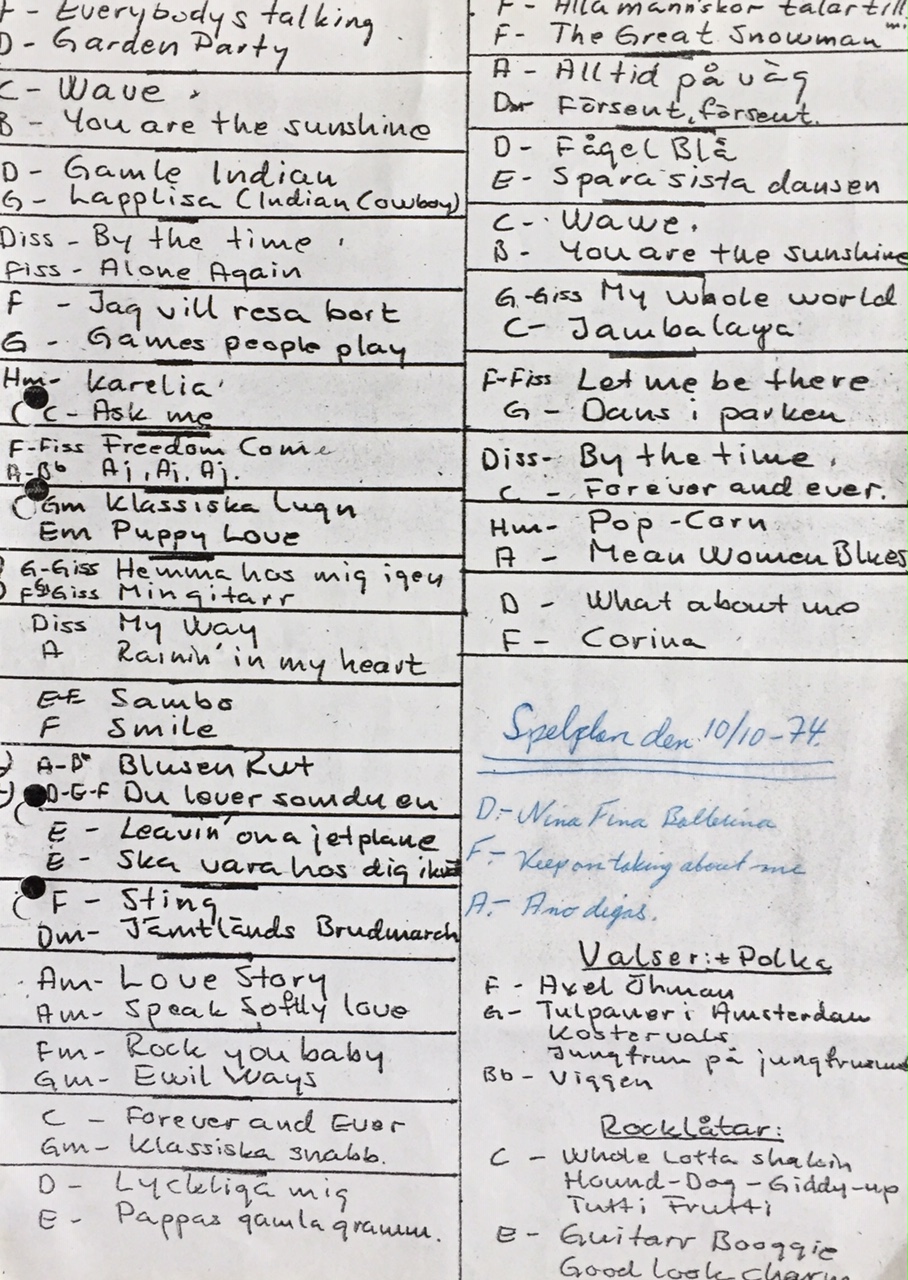 F - Everybodys talking
D - Garden Party
C - Wave
B - You are the sunshine
D - Gamle Indian
G - Lapplisa (Indian Cowboy)
Diss - By the time
Fiss - Alone Again
F - Jag vill resa bort
G - Games people play
Hm - Karelia
C - Ask me
F-Fiss Freedom Come
A-Bb Aj, Aj, Aj.
Gm Klassiska lugn
Em Puppy Love
G-Giss Hemma hos mig igen
Giss Min gitarr
Diss My Way
A Rainin' in my heart
E-E Sambo
F Smile
A-Bb Blusen Rut
D-E-F Du lever som du en
E - Leavin' on a jetplane
E - Ska vara hos dig
F - Sting
Dm - Jämtlands Brudmarch
Am - Love Story
Am - Speak Softly love
Fm - Rock you baby
Gm - Ewil Ways
C - Forever and Ever
Gm - Klassiska snabb.
D - Lyckliga mig
E - Pappas gamla gramm.
F - Alla människor talar till
F - The Great Snowman
A - Alltid på väg
Dm - Försent, försent.
D - Fågel Blå
E - Spara sista dansen
C - Wawe.
B - You are the sunshine
G-Giss My whole world
C - Jambalaya
F-Fiss Let me be there
G - Dans i parken
Diss - By the time.
C - Forever and ever.
Hm - Pop-Corn
A - Mean Women Blues
D - What about me
F - Corina
Spelplan den 10/10-74.
D:- Nina Fina Ballerina
F:- Keep on taking about me
A:- Ano digas.
Valser:+ Polka
F - Axel Öhman
G - Tulpaner i Amsterdam
Kostervals
Jungfrun på jungfrusund
Bb - Viggen
Rocklåtar:
C - Whole Lotta shakin
Hound-Dog - Giddy-up
Tutti Frutti
E - Guitarr Booggie
Good Look Charm